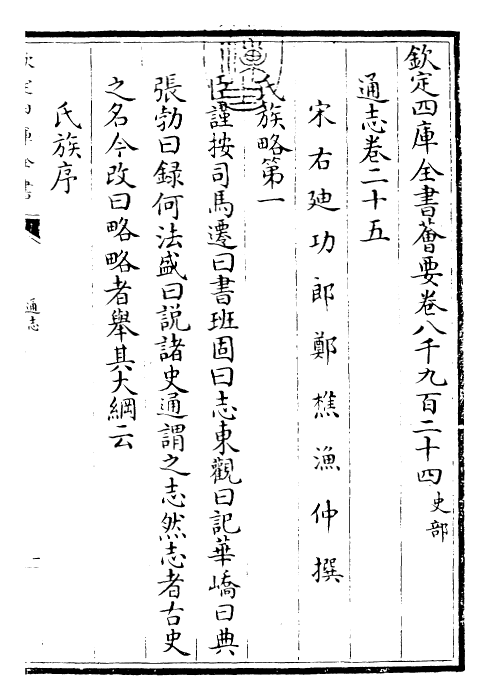 欽定四庫全書薈要卷八千九百二十四 史部
通志卷二十五
宋右廸功郎鄭樵漁仲撰
氏族略第一
臣謹按司馬遷曰書班固曰志東觀曰記華嶠曰典
張勃曰録何法盛曰説諸史通謂之志然志者古史
之名今改曰略略者舉其大綱云
氏族序
欽定四庫全書
通志
一